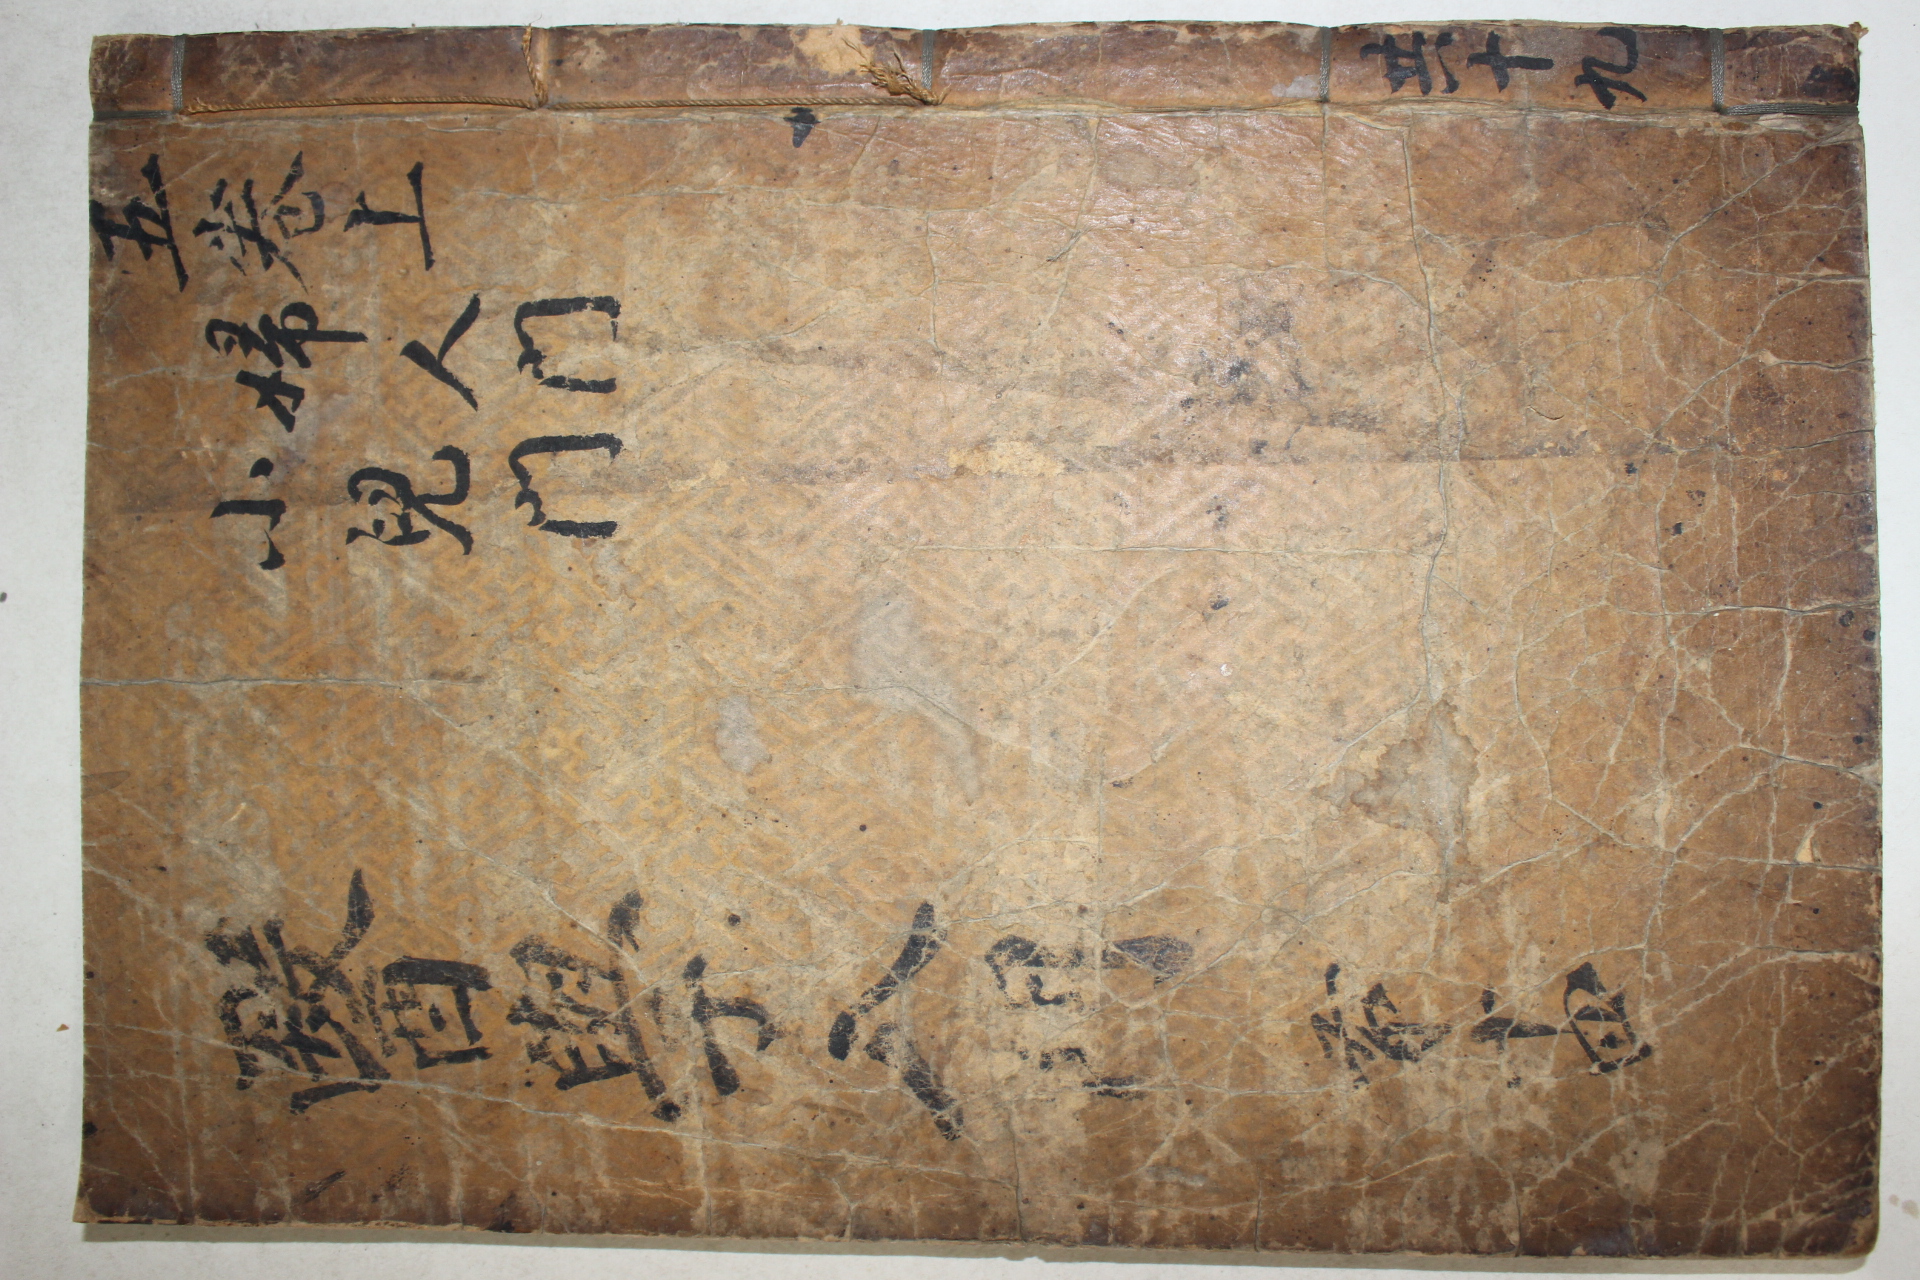 共十九
五卷上
婦人門
小兒門
醫學入門 十四